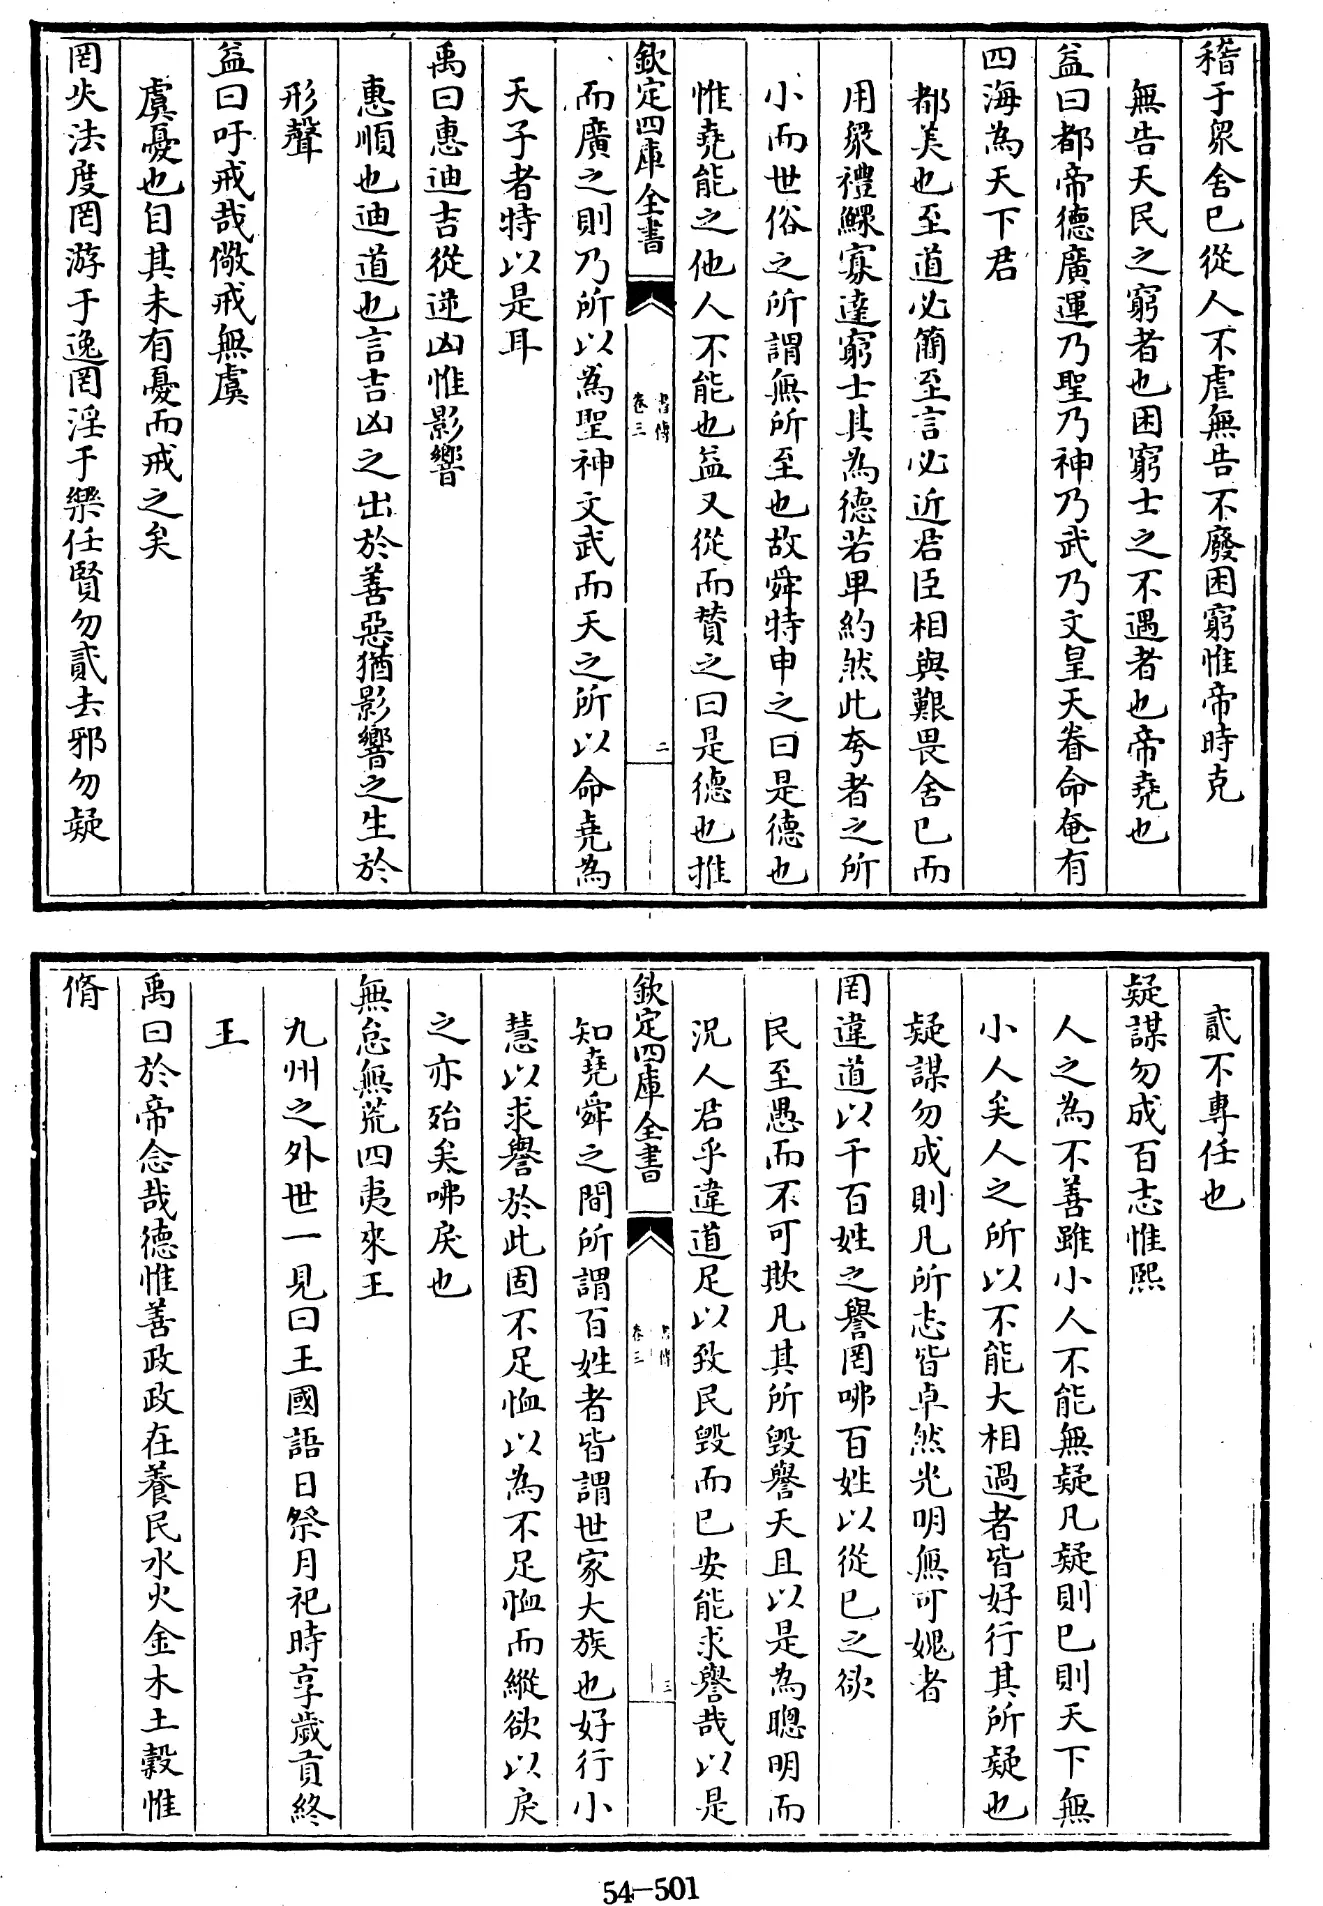 稽于衆舍已從人不虐無告不廢困窮惟帝時克
無告天民之窮者也困窮士之不遇者也帝堯也
益曰都帝德廣運乃聖乃神乃武乃文皇天眷命奄有
四海為天下君
都美也至道必簡至言必近君臣相與艱畏舍已而
用衆禮鰥寡達窮士其為德若卑約然此夸者之所
小而世俗之所謂無所至也故舜特申之曰是德也
惟堯能之他人不能也益又從而贊之曰是德也推
欽定四庫全書
書傳
卷三
二
而廣之則乃所以為聖神文武而天之所以命堯為
天子者特以是耳
禹曰惠迪吉從逆凶惟影響
惠順也迪道也言吉凶之出於善惡猶影響之生於
形聲
益曰吁戒哉儆戒無虞
虞憂也自其未有憂而戒之矣
罔失法度罔游于逸罔淫于樂任賢勿貳去邪勿疑
貳不專任也
疑謀勿成百志惟熙
人之為不善雖小人不能無疑凡疑則已則天下無
小人矣人之所以不能大相過者皆好行其所疑也
疑謀勿成則凡所志皆卓然光明無可媿者
罔違道以干百姓之譽罔咈百姓以從已之欲
民至愚而不可欺凡其所毀譽天且以是為聰明而
況人君乎違道足以致民毀而已安能求譽哉以是
欽定四庫全書
書傳
卷三
三
知堯舜之間所謂百姓者皆謂世家大族也好行小
慧以求譽於此固不足恤以為不足恤而縱欲以戾
之亦殆矣咈戾也
無怠無荒四夷來王
九州之外世一見曰王國語日祭月祀時享歲貢終
王
禹曰於帝念哉德惟善政政在養民水火金木土穀惟
脩
54-501